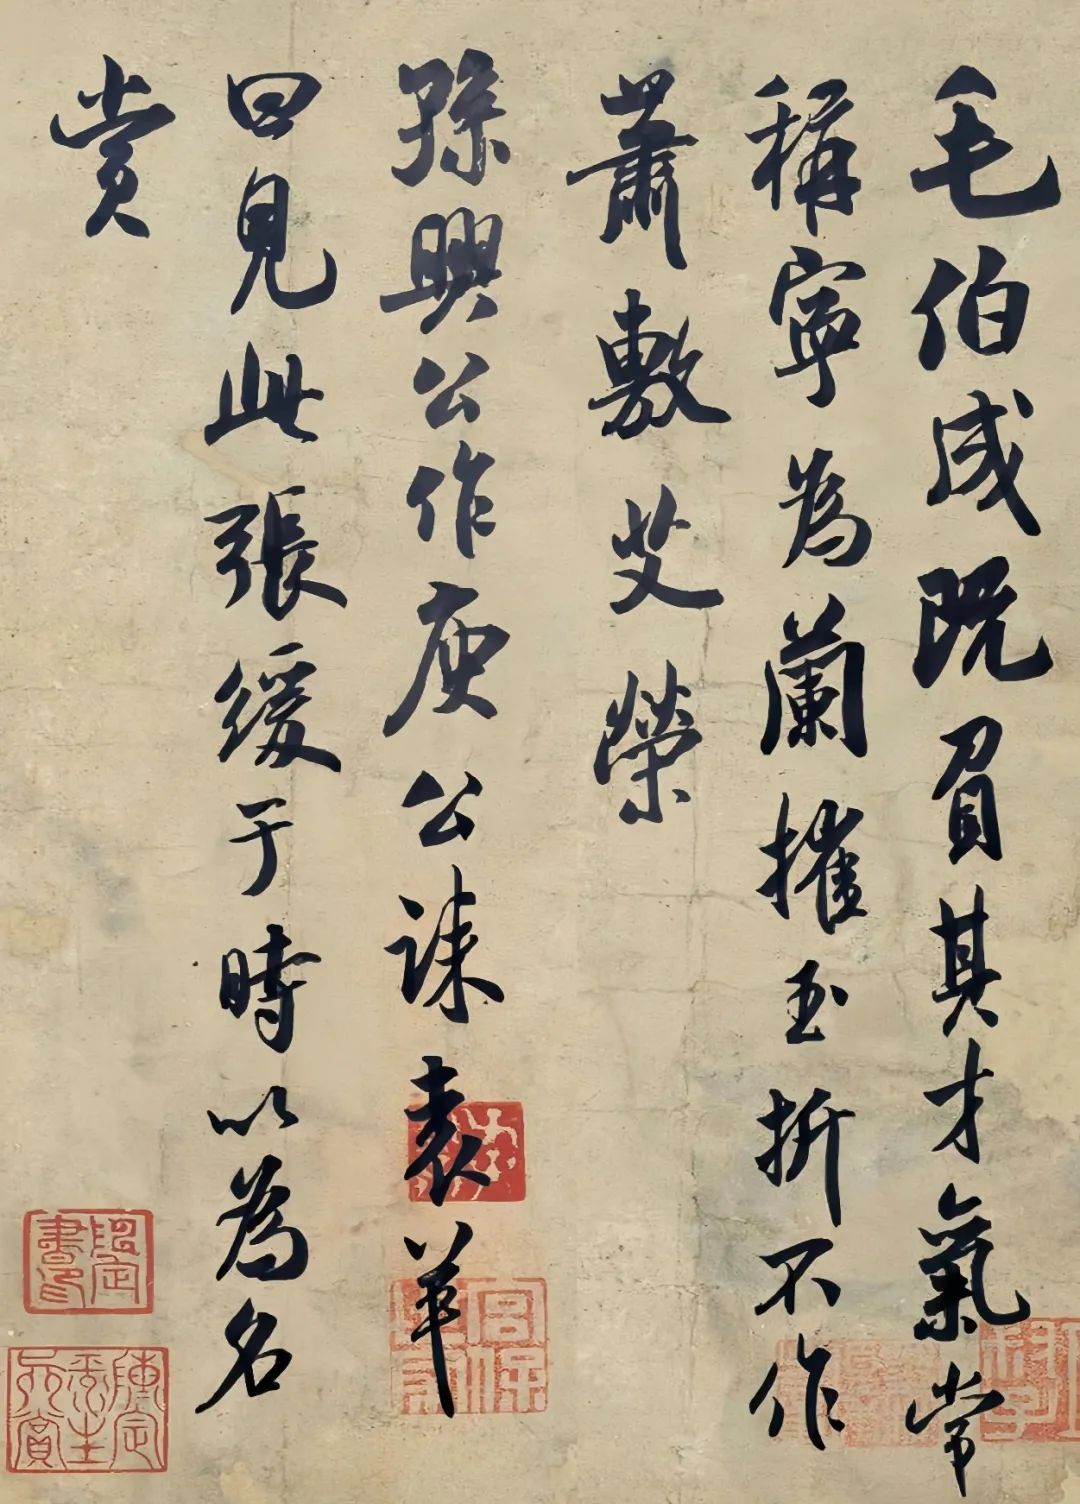 毛伯成既負其才氣常
稱寧為蘭摧玉折不作
蕭敷艾榮
孫興公作庾公誄袁羊
曰見此張緩于時以為名
賞
宮保世家